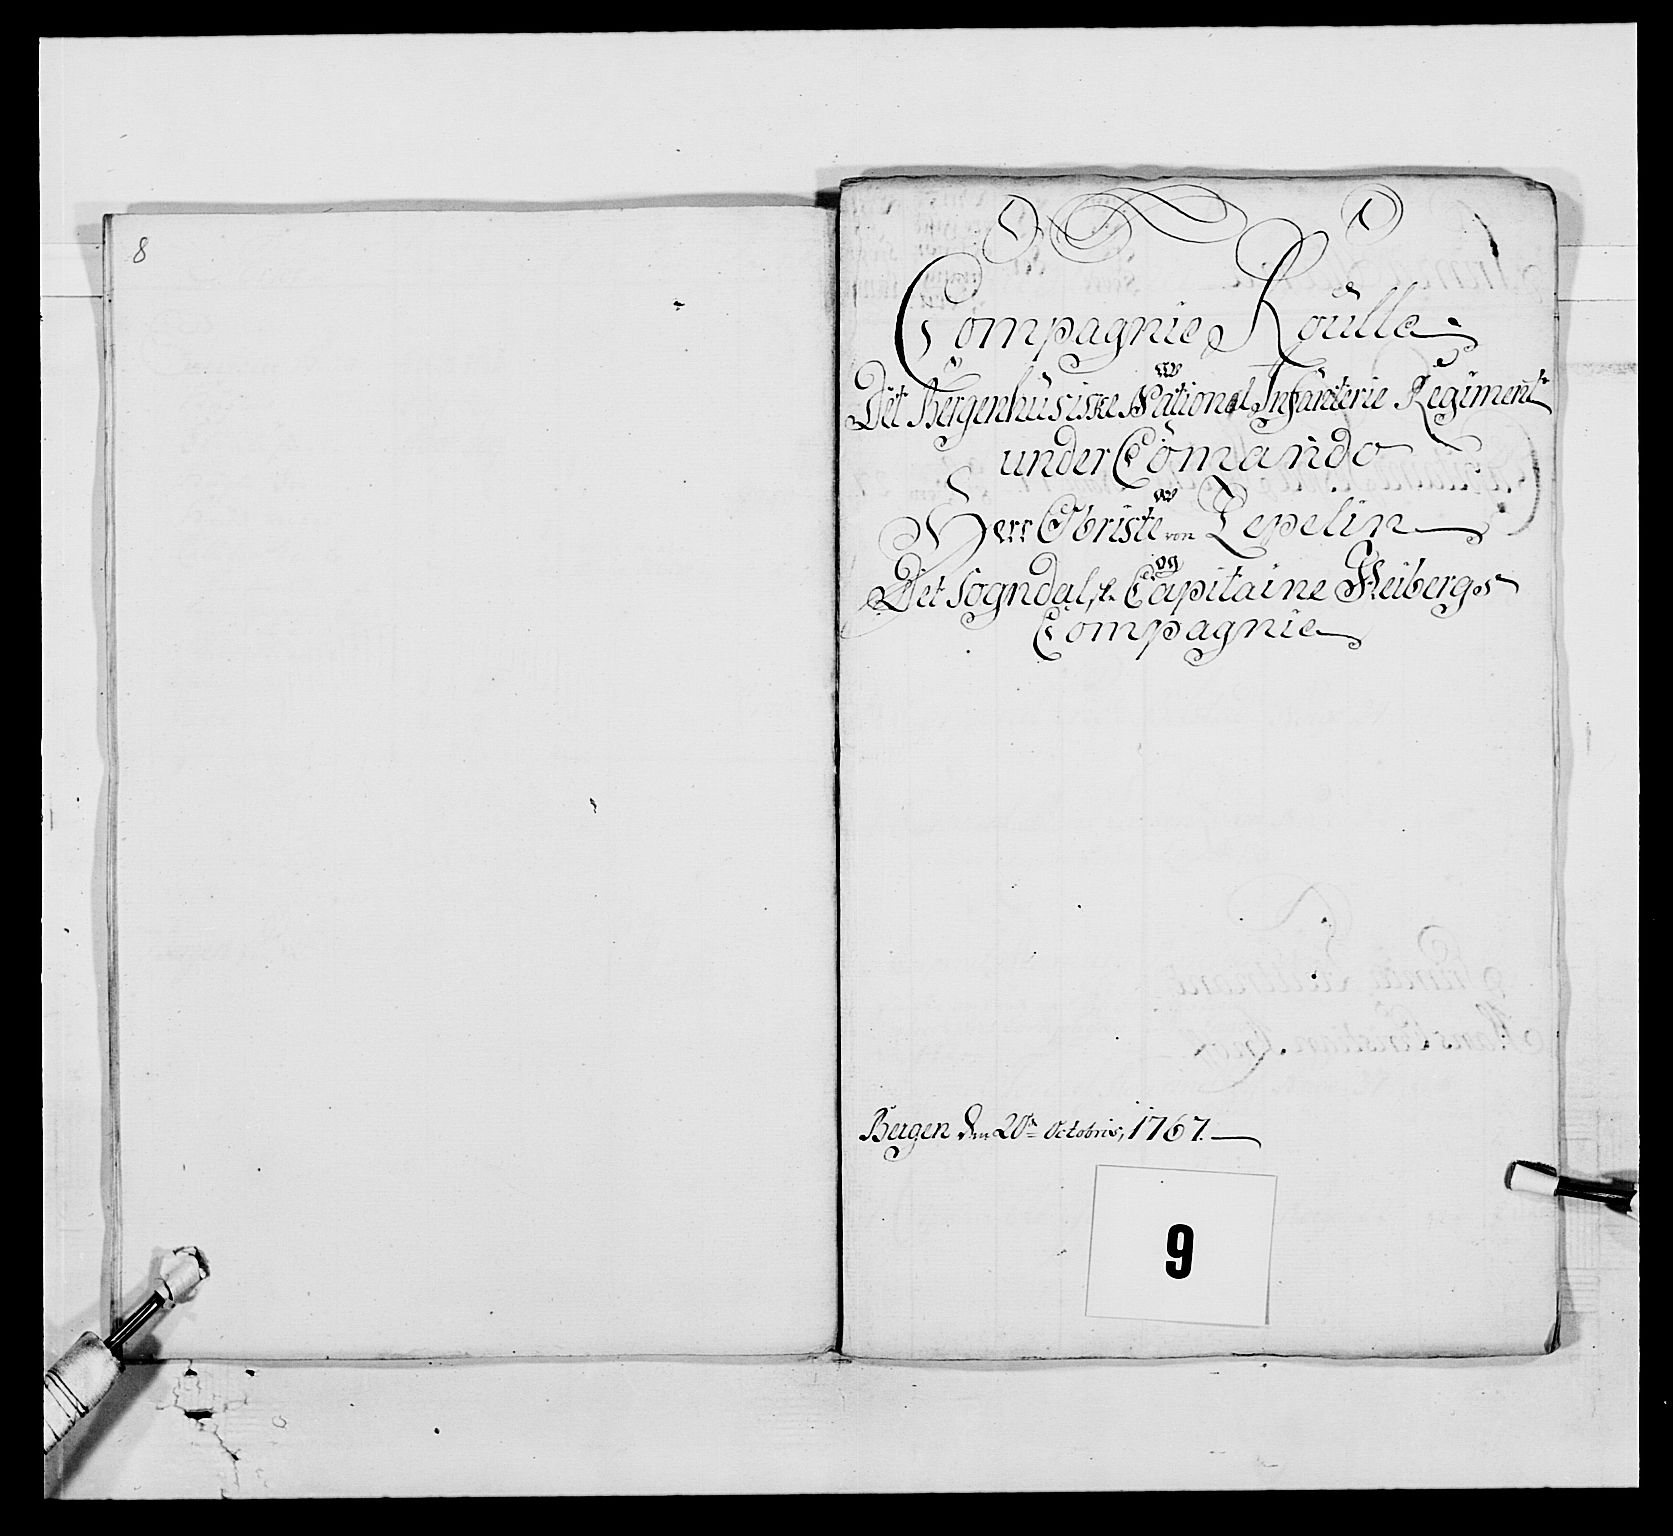 8
Compagnie Roulle
av
Det Bergenhusiske National Infanterie Regiment
under Comando
av
Herr Obriste von Zepelin
og
Det Sogndalske Capitaine Heibergs
Compagnie
Bergen den 20de Octobris, 1767.
9